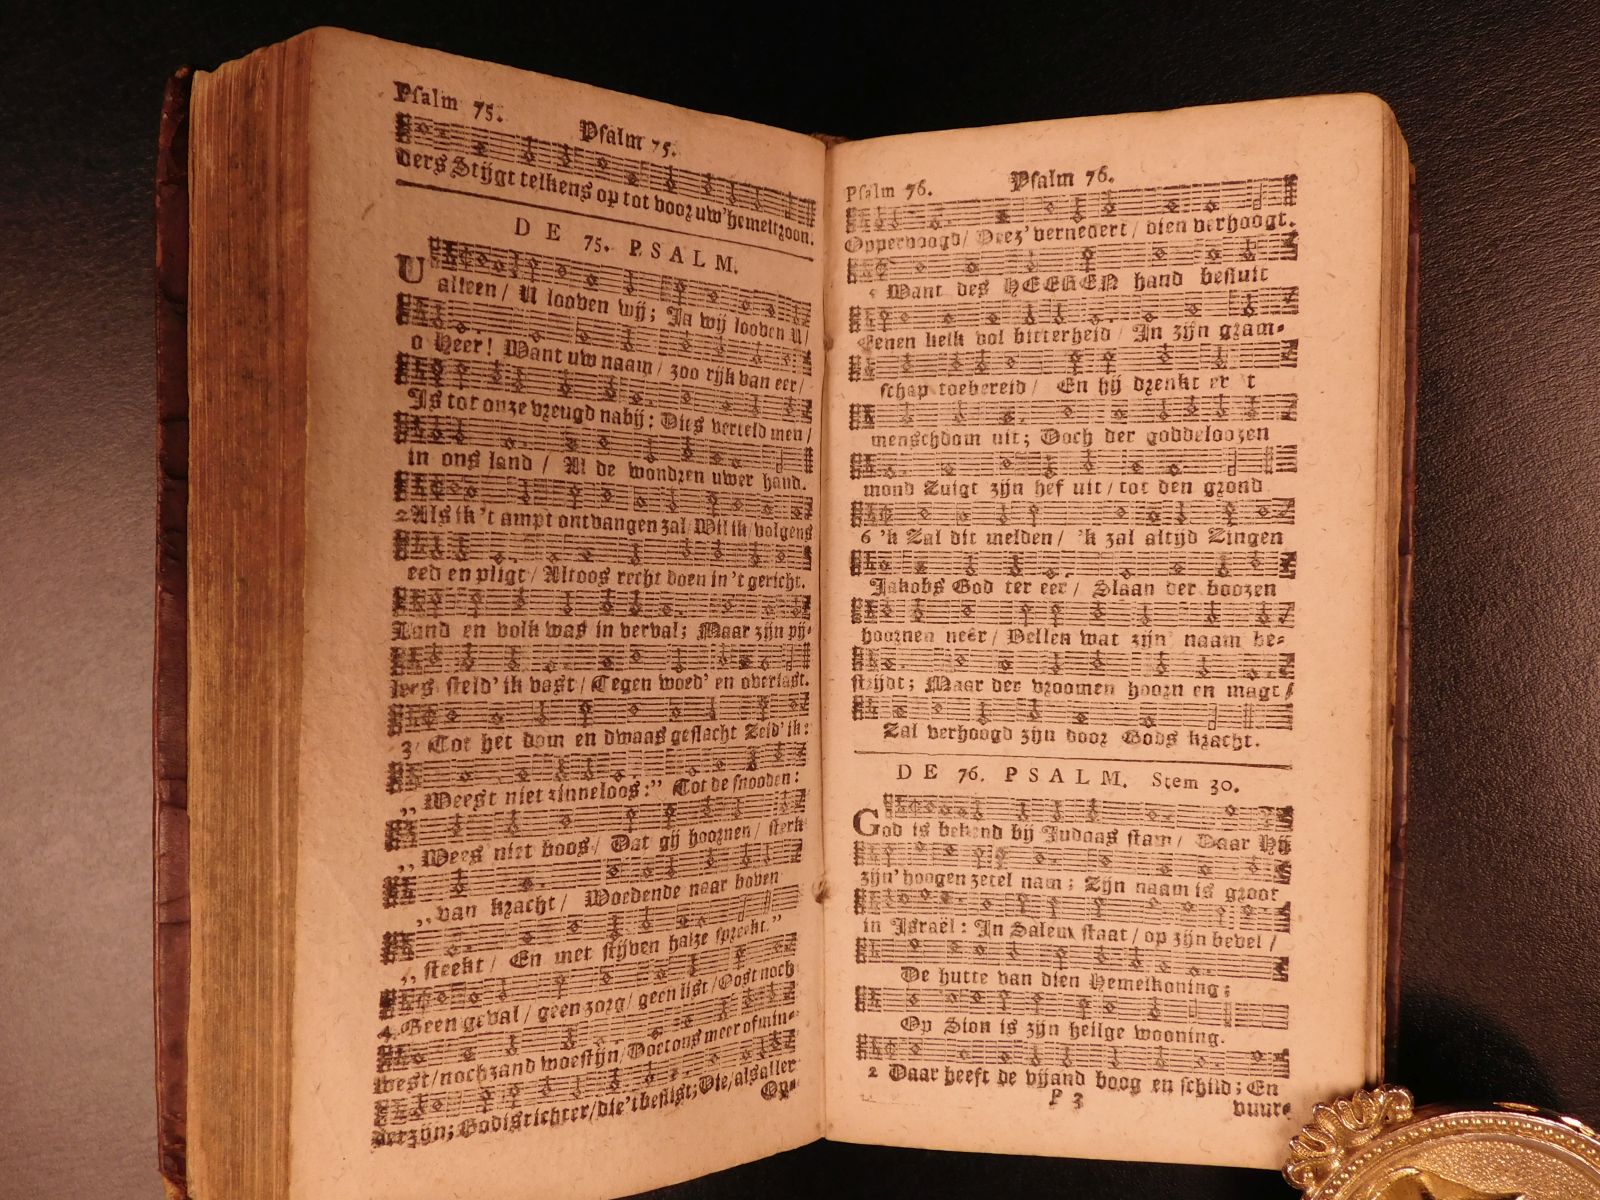 Psalm 75.
Psalm 75.
ders Stijgt telkens op tot voor uw' hemeltroon.
DE 75. PSALM.
U alleen / U looven wij; Ja wij looven U /
o Heer! Want uw naam / zoo rijk van eer /
Is tot onze vreugd nabij: Dies verteld men /
in ons land / Al de wondren uwer hand.
2 Als ik 't ampt ontvangen zal / Wil ik / volgens
eed en pligt / Altoos recht doen in 't gericht.
Land en volk was in verval; Maar zijn pij-
lers steld' ik vast / Tegen woed' en overlast.
3 / Tot het dom en dwaas geslacht Zeid' ik:
„ Weest niet zinneloos:” Tot de snooden:
„ Wees' niet boos / Dat gij hoornen / sterk
„ van kracht / Woedende naar boven
„ steekt / En met stijven halze spreekt.”
4 Geen geval / geen zorg / geen list / Oost noch
west / noch zand woestijn / Doet ons meer of min-
der zijn; God is richter / die 't beslist; Die / als aller
Op-
Psalm 76.
Psalm 76.
Oppervoogd / Deez' vernedert / dien verhoogt.
5 Want des HEEREN hand besluit
Eenen kelk vol bitterheid / In zijn gram-
schap toebereid / En hij drenkt er 't
menschdom uit; Doch der goddeloozen
mond Zuigt zijn hef uit / tot den grond
6 'k Zal dit melden / 'k zal altijd Zingen
Jakobs God ter eer / Slaan der boozen
hoornen neêr / Vellen wat zijn naam be-
strijdt; Maar der vroomen hoorn en magt /
Zal verhoogd zijn door Gods kracht.
DE 76. PSALM. Stem 30.
God is bekend bij Judaas stam / Daar Hij
zijn' hoogen zetel nam; Zijn naam is groot
in Israël: In Salem staat / op zijn bevel /
De hutte van dien Hemelkoning;
Op Sion is zijn heilge wooning.
2 Daar heeft de vijand boog en schild; En
P 3
vuur-